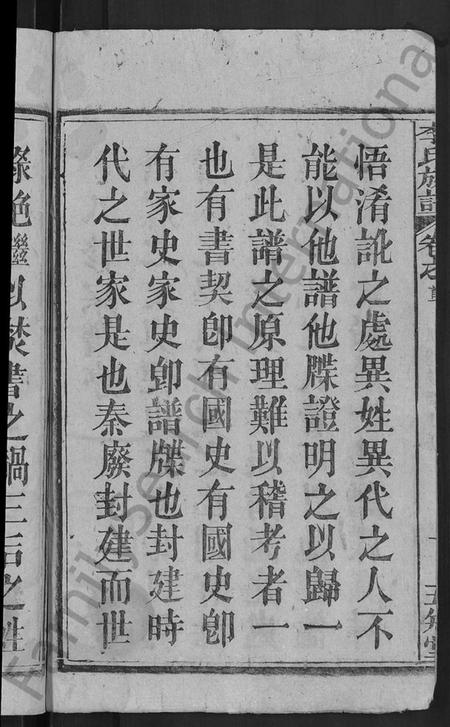 李氏族譜
卷首
悟淆訛之處異姓異代之人不
能以他譜他牒證明之以歸一
是此譜之原理難以稽考者一
也有書契卽有國史有國史卽
有家史家史卽譜牒也封建時
代之世家是也秦廢封建而世
祿絶繼以焚書之禍三古之姓
FamilySearch International